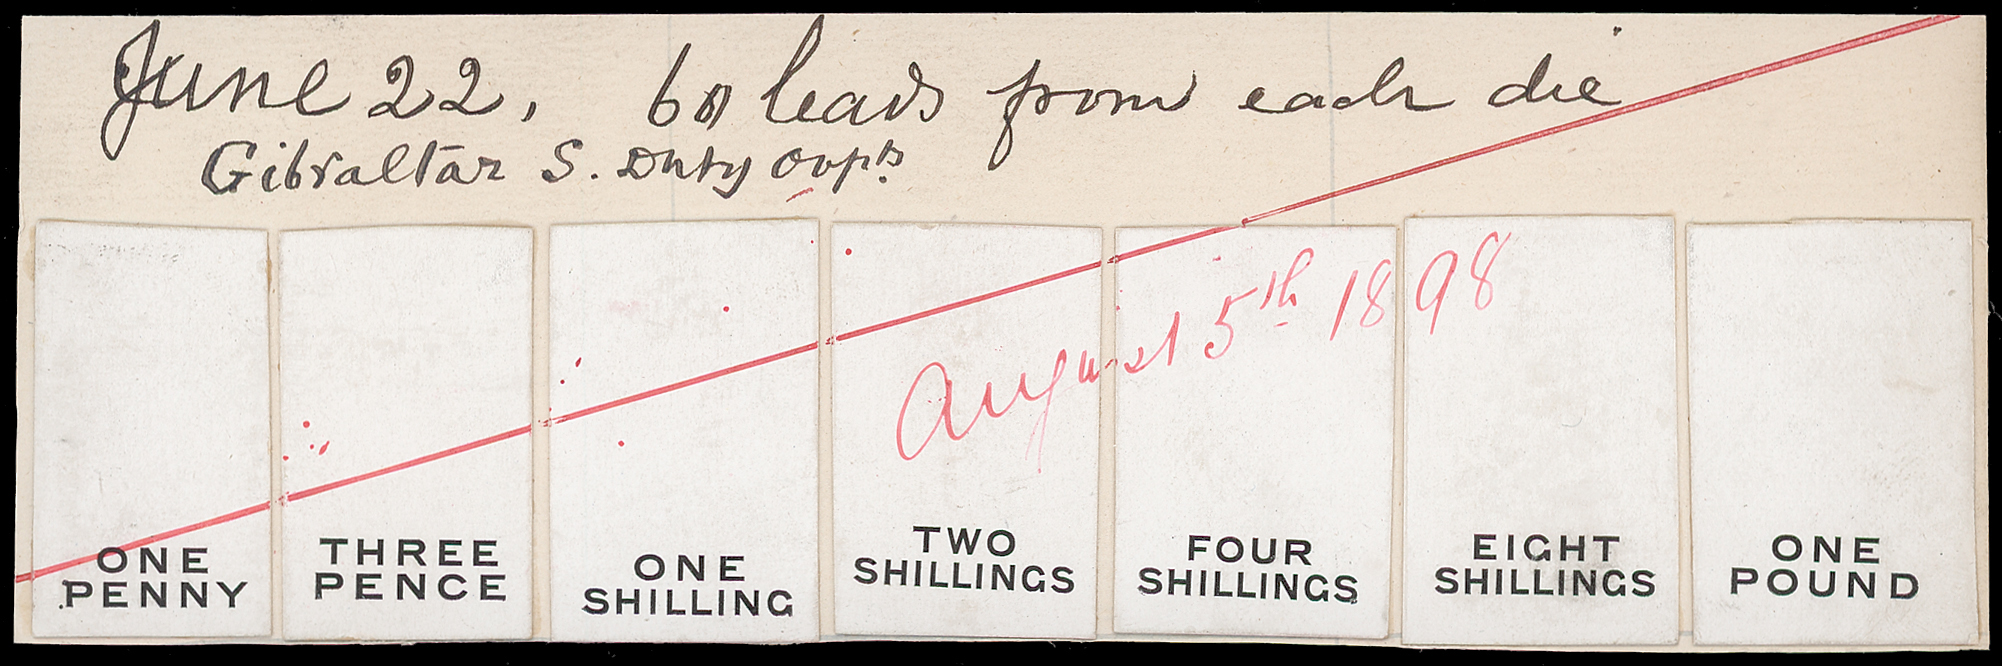 June 22, 60 leads from each die
Gibraltar S. Duty Ovpts.
August 5th 1898
ONE
PENNY
THREE
PENCE
ONE
SHILLING
TWO
SHILLINGS
FOUR
SHILLINGS
EIGHT
SHILLINGS
ONE
POUND